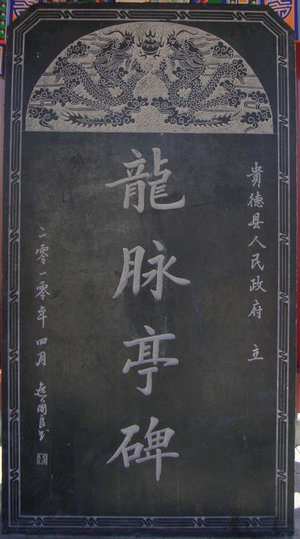 貴德县人民政府 立
龍脉亭碑
二零一零年四月